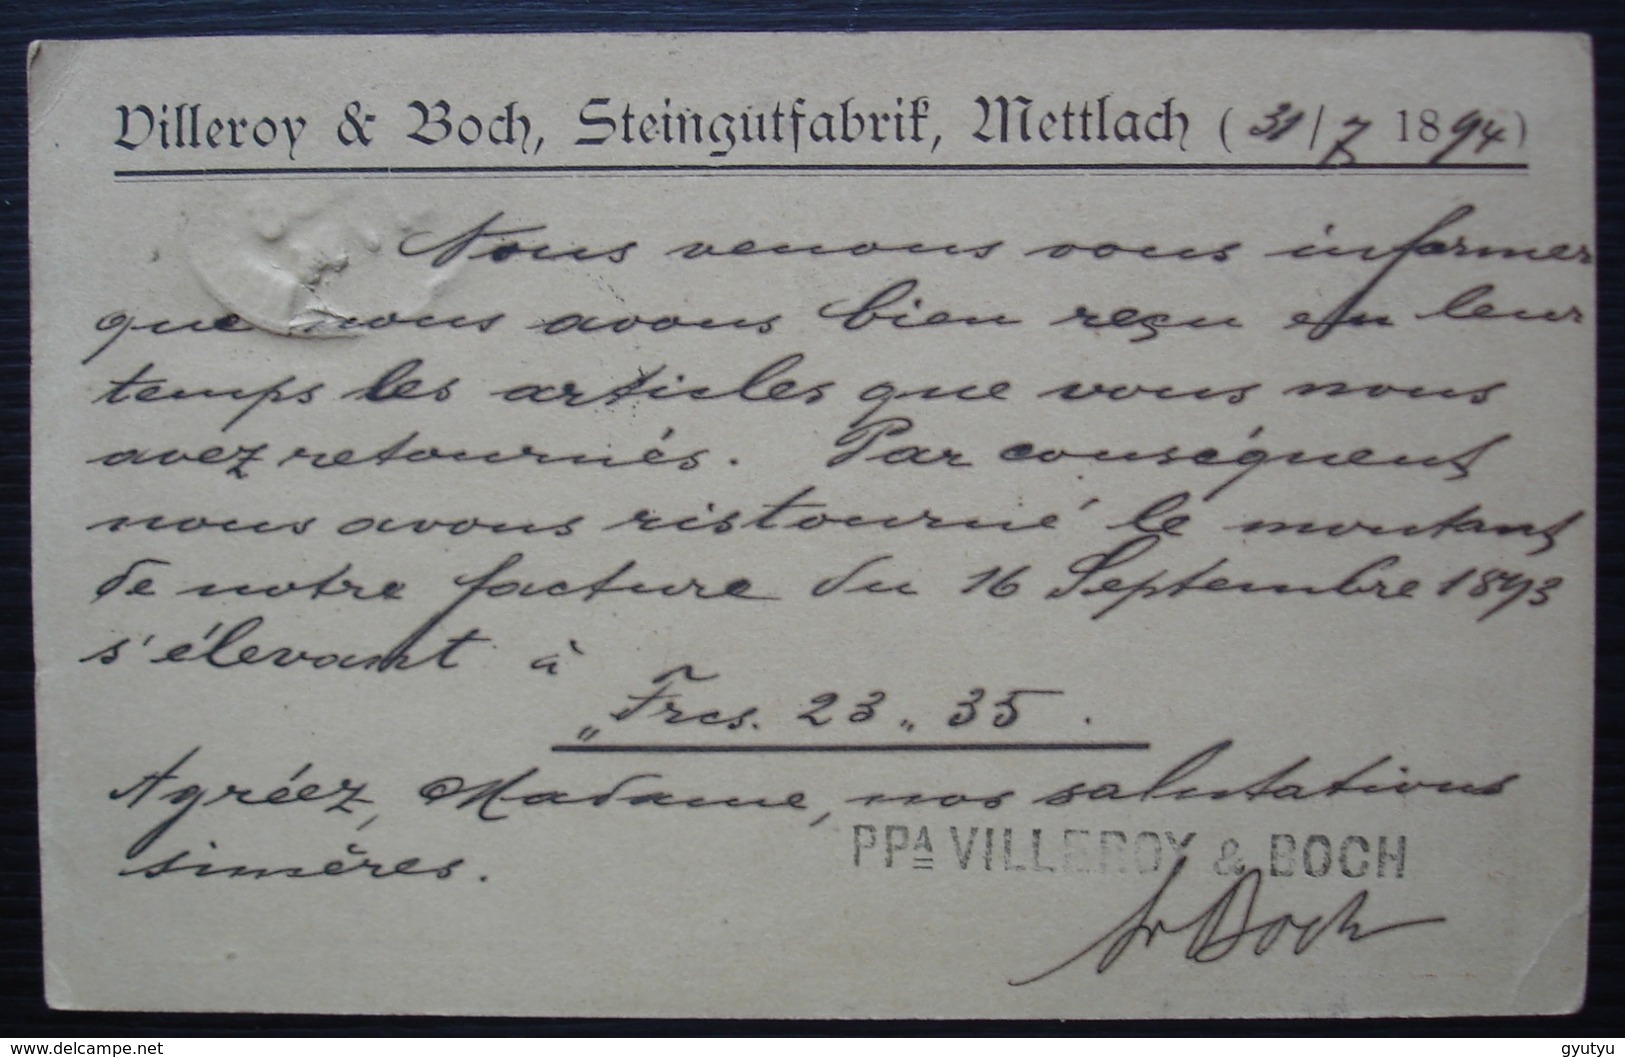 Villeroy & Boch, Steingutfabrik, Mettlach (31/7 1894)
Nous venons vous informer
que nous avons bien reçu en leur
temps les articles que vous nous
avez retournés. Par conséquent
nous avons ristourné le montant
de notre facture du 16 Septembre 1893
s'élevant à
„Frcs. 23 „ 35 .
Agréez, Madame, nos salutations
sincères.
PPA VILLEROY & BOCH
Boch
delcampe.net
gyutyu